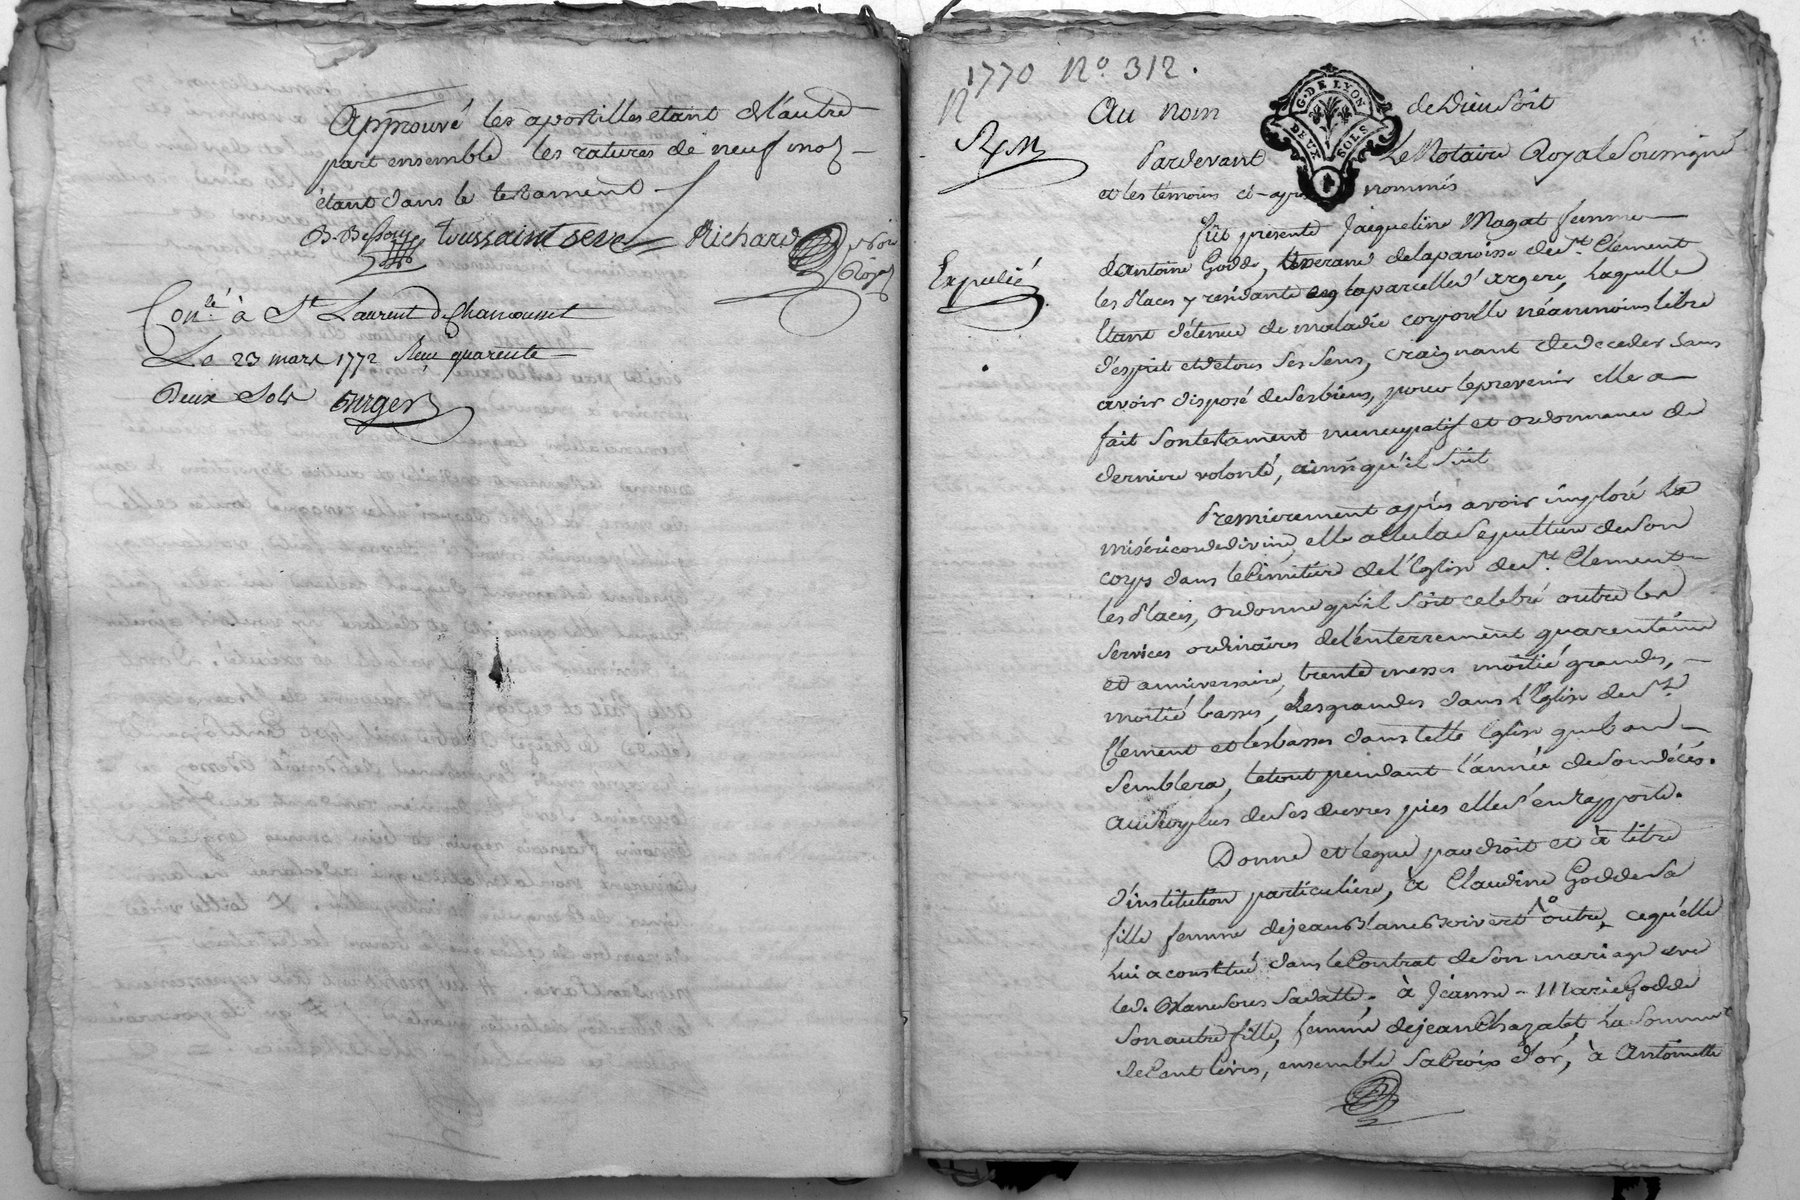 Approuvé les apostilles etant de l'autre
part ensemble les ratures de neuf mots
étant dans le testament
toussaint Richard
Con.lé à St Laurent de Chamousset
Le 23 mars 1772 Reçu quarente
Deux Sols
1770 No. 312.
Expedié
G. DE LYON
DEUX SOLS
Au nom de Dieu soit
Pardevant Le Notaire Royal Soussigné
et les témoins ci-après nommés
fût présente Jacqueline Magat femme
d'antoine Godde, de la paroisse de St. Clément
les places y résidante parcelle d'argere, laquelle
étant détenue de maladie corporelle néanmoins libre
d'esprit et de tous ses sens, craignant de deceder sans
avoir disposé de ses biens, pour le prevenir elle a
fait son testament nuncupatif et ordonnance de
derniere volonté, ainsi qu'il suit
Premierement après avoir imploré La
miséricorde divine, elle a élu la Sepulture de Son
corps dans le Cimitiere de l'Eglise de St. Clement
les places, ordonne qu'il soit celebré outre les
services ordinaires de l'enterrement quarentaine
et anniversaire, trente messes moitié grandes,
moitié basses, les grandes dans L'Eglise de St.
Clement et les basses dans telle Eglise que bon
semblera, le tout pendant l'année de son décés.
au surplus de ses œuvres pies elle s'en rapporte.
Donne et legue par droit et à titre
d'institution particuliere, à Claudine Godde Sa
fille femme de jean outre, ce qu'elle
lui a constitué dans le Contrat de Son mariage avec
led. à Jeanne-Marie Godde
Son autre fille, femme de jean Chazalet, La Somme
de Cent livres, ensemble Sa Croix d'or, à Antoinette